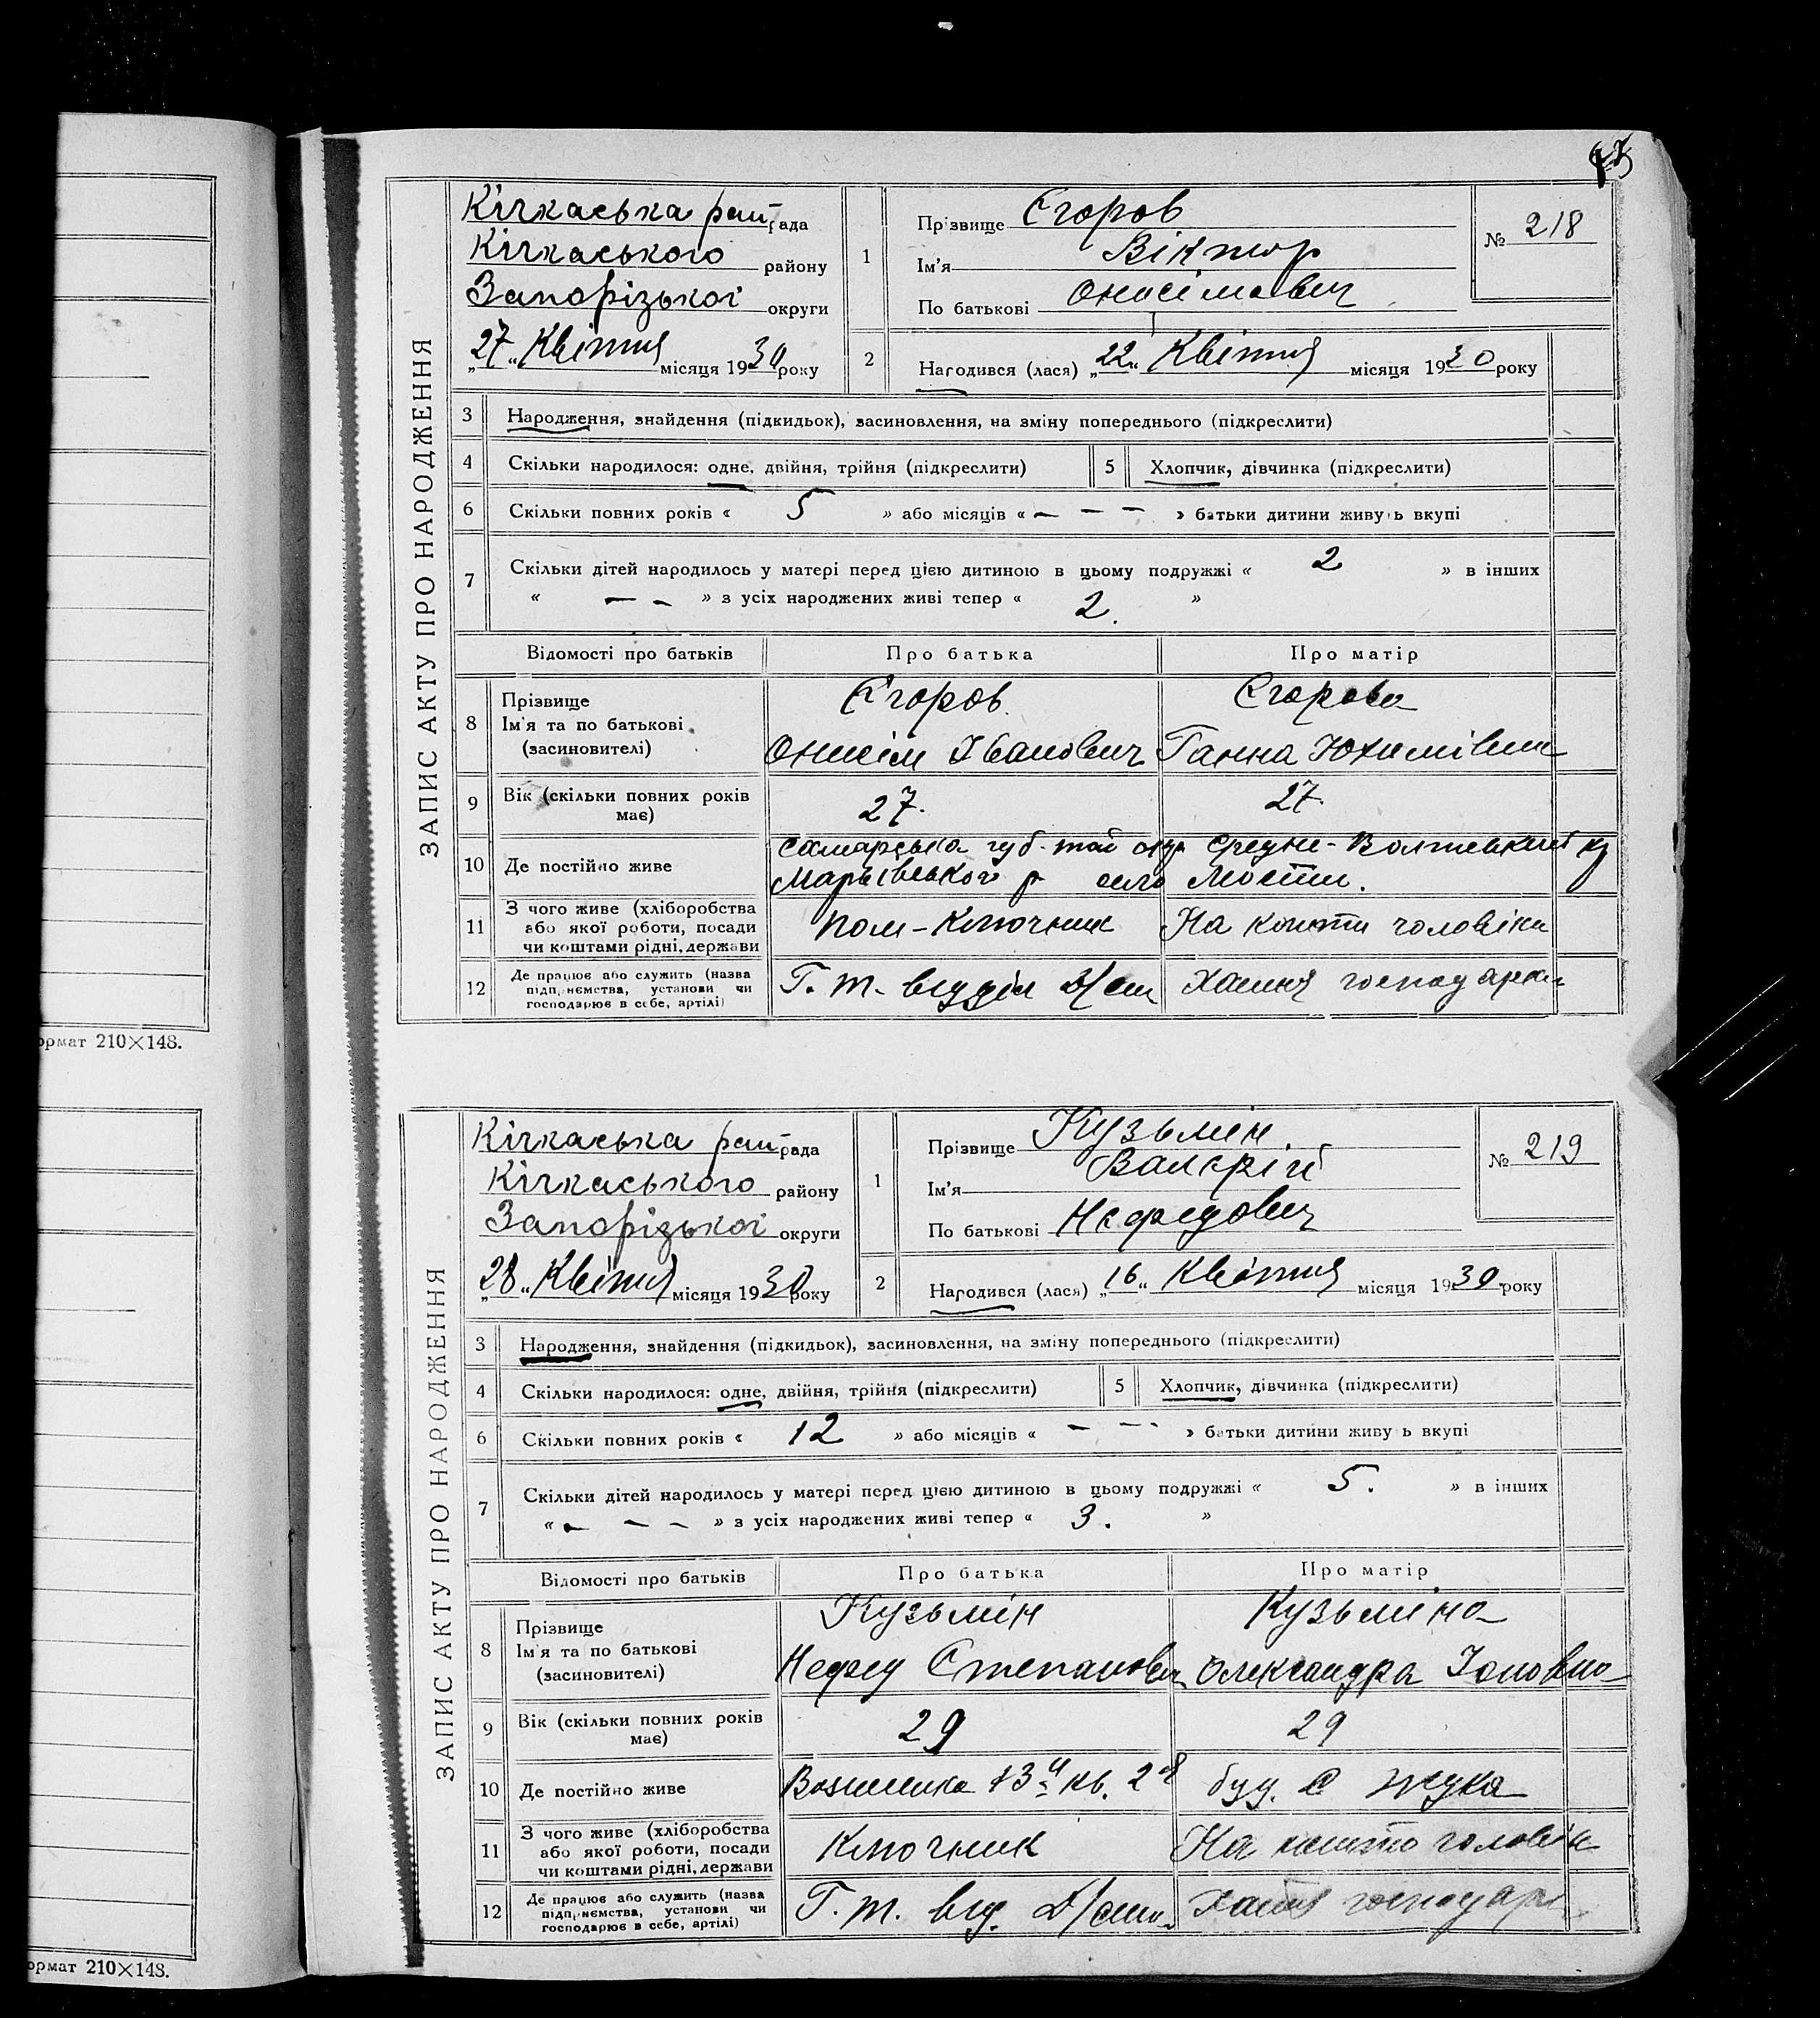 ормат 210×148.
ормат 210×148.
ЗАПИС АКТУ ПРО НАРОДЖЕННЯ
Кічкаська рай рада
Кічкаського району
Запорізької округи
„27“ Квітня місяця 1930 року
1
Прізвище Єгоров
Ім'я Віктор
По батькові Онисімович
№ 218
2
Народився (лася) „22“ Квітня місяця 1930 року
3 Народження, знайдення (підкидьок), засиновлення, на зміну попереднього (підкреслити)
4 Скільки народилося: одне, двійня, трійня (підкреслити) 5 Хлопчик, дівчинка (підкреслити)
6 Скільки повних років « 5 » або місяців « — — — » батьки дитини живуть вкупі
7 Скільки дітей народилось у матері перед цією дитиною в цьому подружжі « 2 » в інших
« — — » з усіх народжених живі тепер « 2. »
Відомості про батьків Про батька Про матір
8 Прізвище
Ім'я та по батькові
(засновителі)
Єгоров Єгорова
Онисім Іванович Ганна Юхимівна
9 Вік (скільки повних років
має)
27. 27.
10 Де постійно живе
Самарська губ. окр Средне-Волжський
село Мости.
11 З чого живе (хліборобства
або якої роботи, посади
чи коштами рідні, держави
пом-Ключник На кошти чоловіка
12 Де працює або служить (назва
підприємства, установи чи
господарює в себе, артілі)
Г. т. відділ Д/ст Хатня господарка
ЗАПИС АКТУ ПРО НАРОДЖЕННЯ
Кічкаська рай рада
Кічкаського району
Запорізької округи
„28“ Квітня місяця 1930 року
1
Прізвище Кузьмін.
Ім'я Валєрій
По батькові Нефедович
№ 219
2
Народився (лася) „16“ Квітня місяця 1930 року
3 Народження, знайдення (підкидьок), засиновлення, на зміну попереднього (підкреслити)
4 Скільки народилося: одне, двійня, трійня (підкреслити) 5 Хлопчик, дівчинка (підкреслити)
6 Скільки повних років « 12 » або місяців « — — - » батьки дитини живу ь вкупі
7 Скільки дітей народилось у матері перед цією дитиною в цьому подружжі « 5. » в інших
« — — — » з усіх народжених живі тепер « 3. »
Відомості про батьків Про батька Про матір
8 Прізвище
Ім'я та по батькові
(засиновителі)
Кузьмін Кузьміна
Нефед Степанович Олександра Іоновна
9 Вік (скільки повних років
має)
29 29
10 Де постійно живе
13й кв. 28 буд.
11 З чого живе (хліборобства
або якої роботи, посади
чи коштами рідні, держави
Ключник На кошти чоловік
12 Де працює або служить (назва
підприємства, установи чи
господарює в себе, артілі)
Г. т. від. Д/ст. Хатня господар